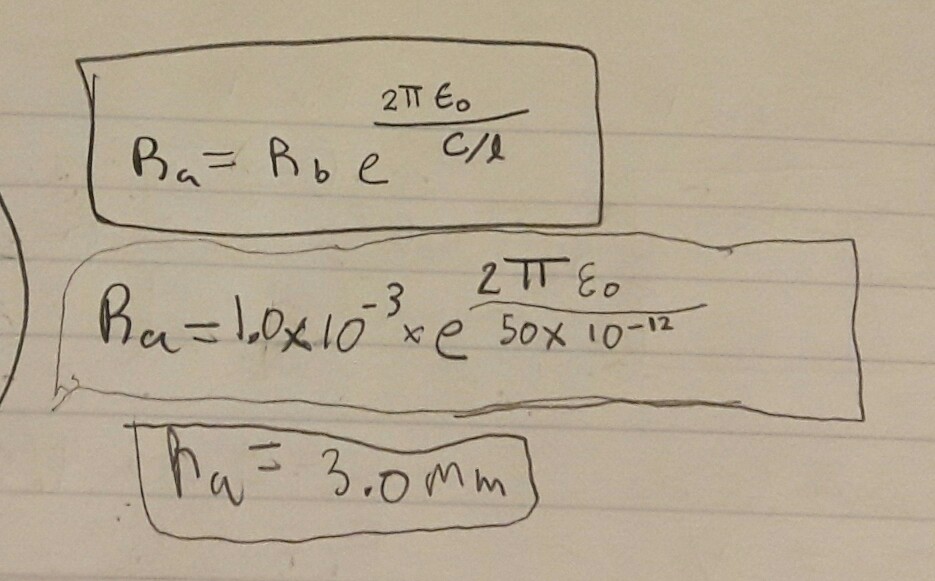 Ra = Rb e^(2π ε₀ / C/l)
Ra = 1.0 x 10⁻³ x e^(2π ε₀ / 50 x 10⁻¹²)
Ra = 3.0 mm